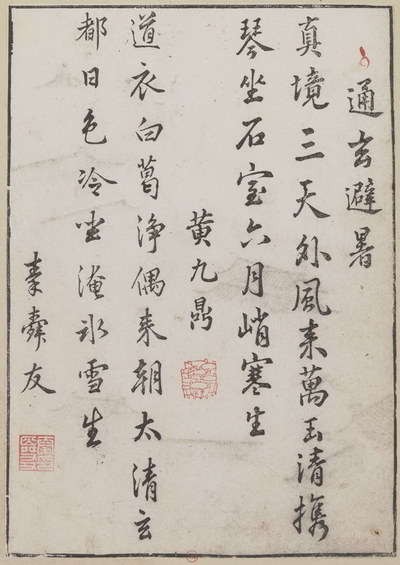 通玄避暑
真境三天外風来萬玉清携
琴坐石室六月峭寒生
黄九鼎
道衣白葛淨偶来朝太清玄
都日色冷坐淹冰雪生
秦舜友